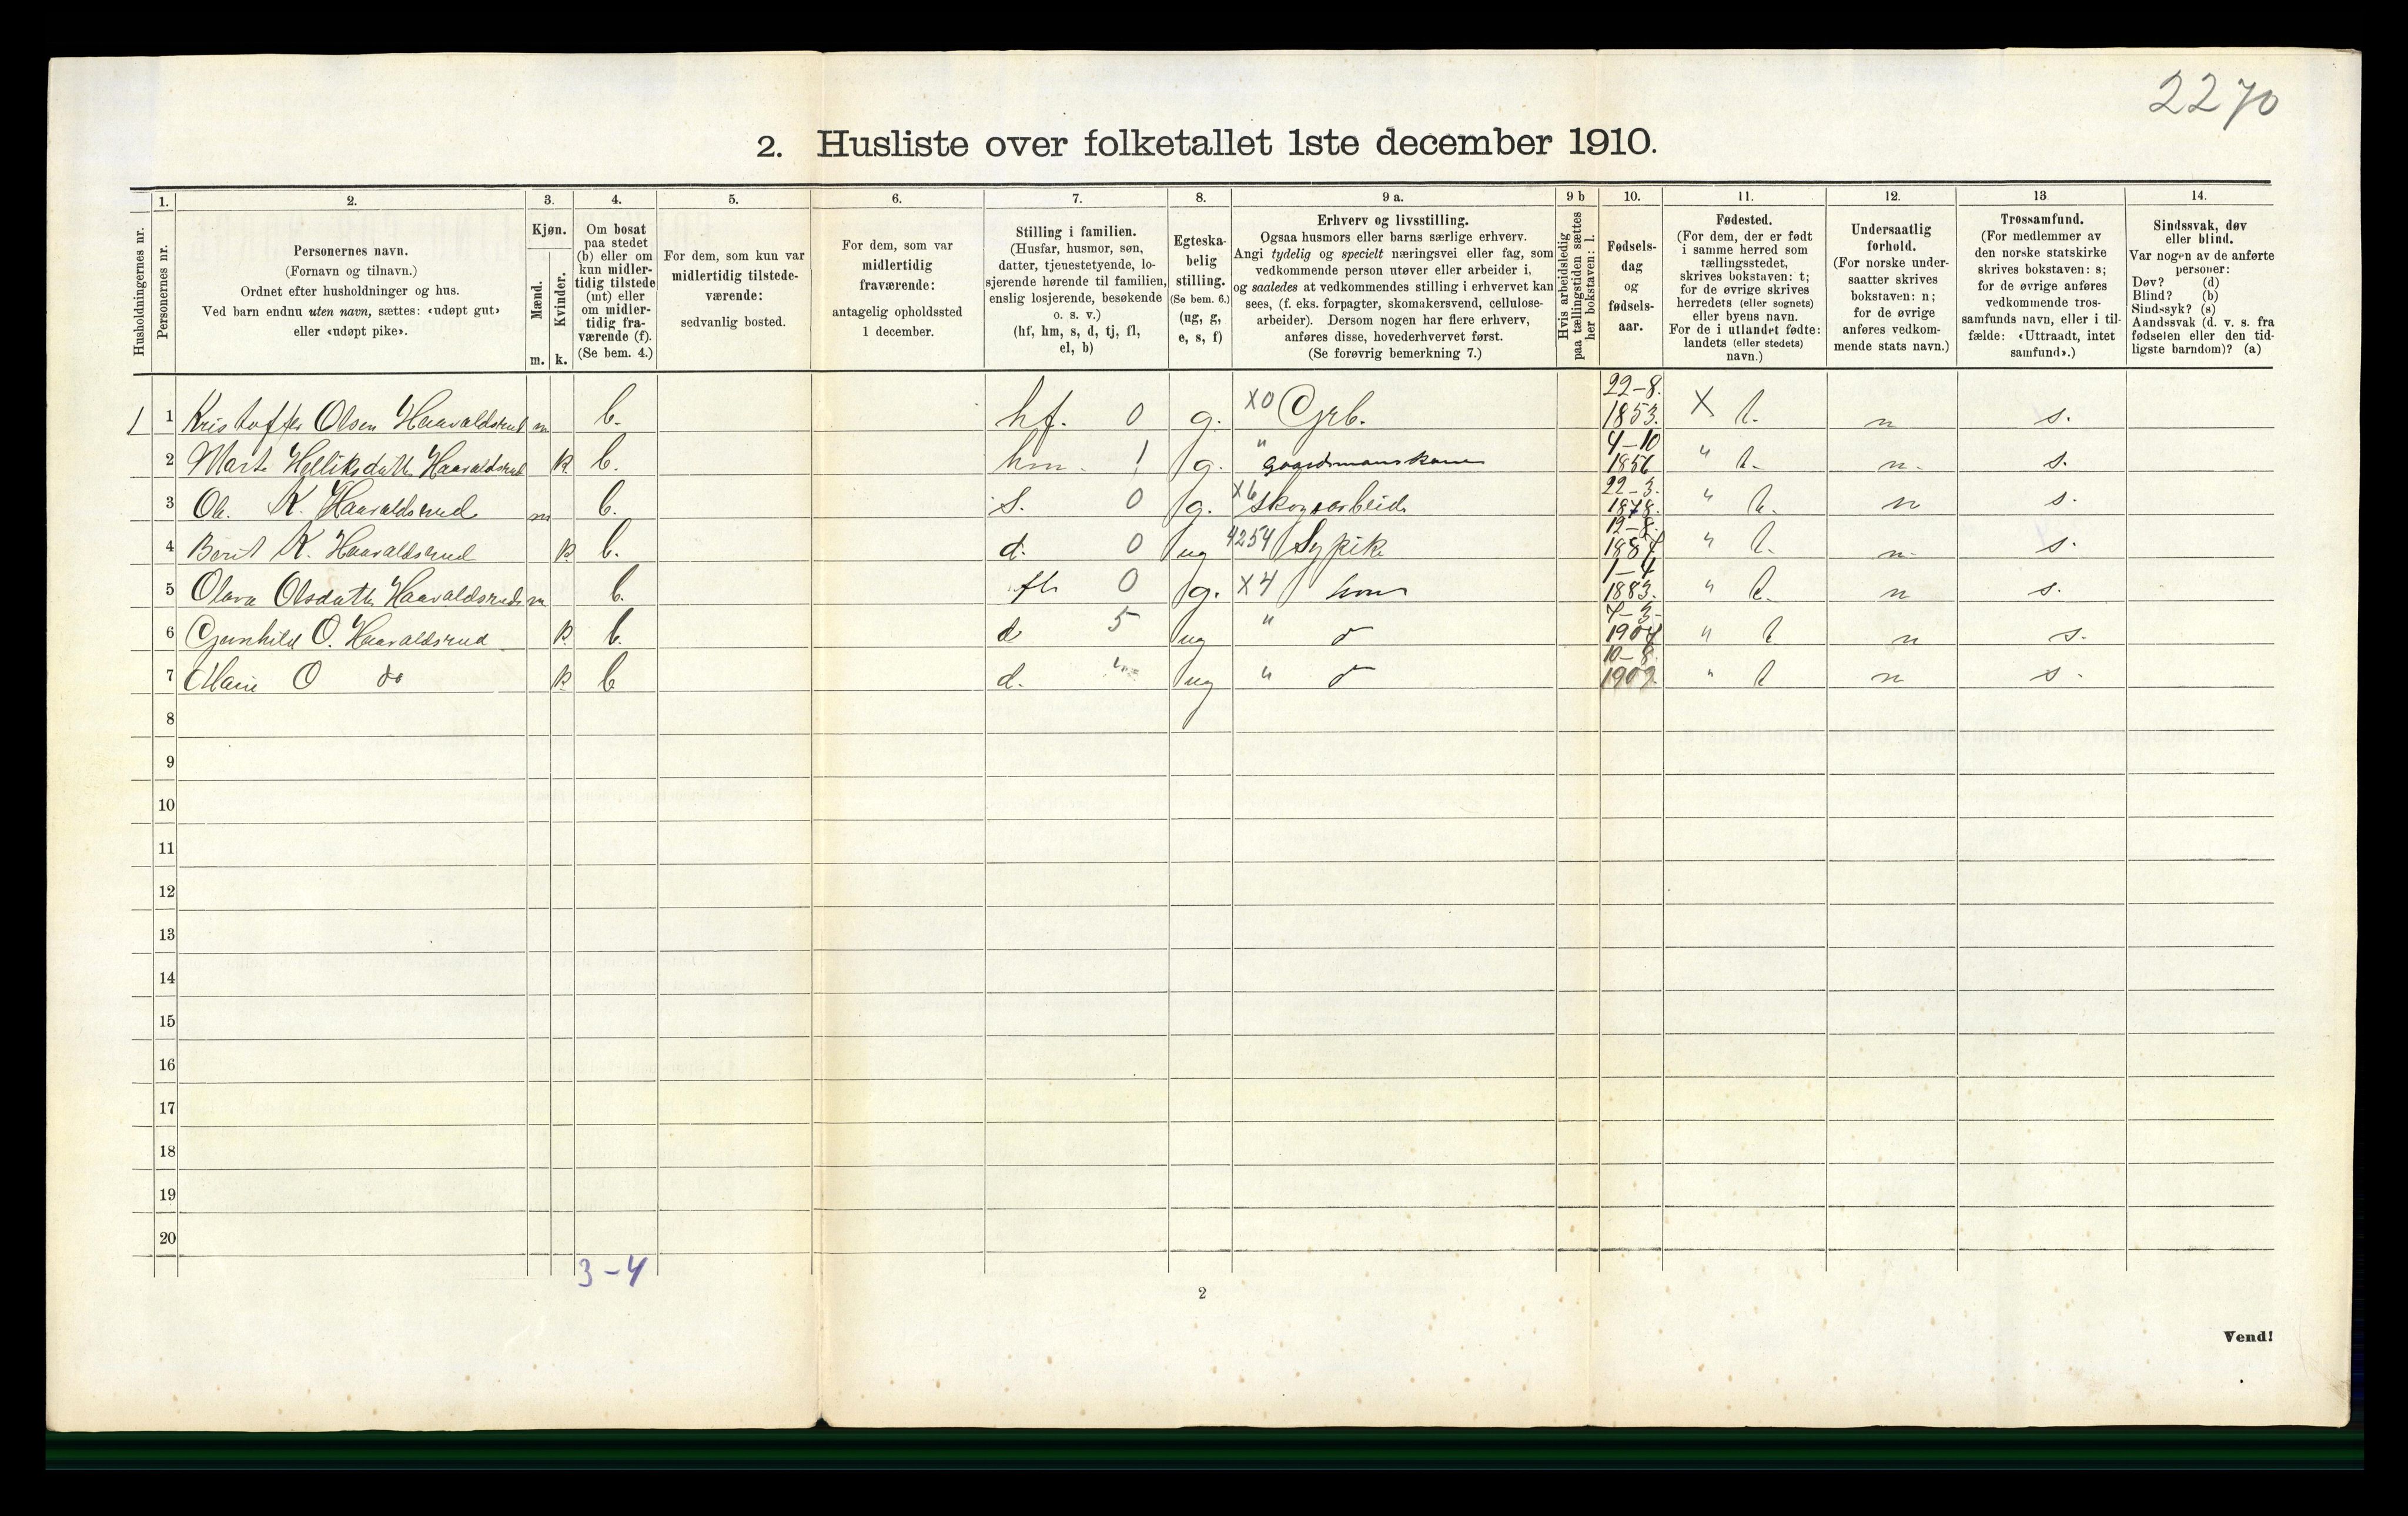 2270
2. Husliste over folketallet 1ste december 1910.
Husholdningernes nr.
1. Personernes nr.
2. Personernes navn.
(Fornavn og tilnavn.)
Ordnet efter husholdninger og hus.
Ved barn endnu uten navn, sættes: «udøpt gut»
eller «udøpt pike».
3. Kjøn.
Mænd. m.
Kvinder. k.
4. Om bosat
paa stedet
(b) eller om
kun midler-
tidig tilstede
(mt) eller
om midler-
tidig fra-
værende (f).
(Se bem. 4.)
5. For dem, som kun var
midlertidig tilstede-
værende:
sedvanlig bosted.
6. For dem, som var
midlertidig
fraværende:
antagelig opholdssted
1 december.
7. Stilling i familien.
(Husfar, husmor, søn,
datter, tjenestetyende, lo-
sjerende hørende til familien,
enslig losjerende, besøkende
o. s. v.)
(hf, hm, s, d, tj, fl,
el, b)
8. Egteska-
belig
stilling.
(Se bem. 6.)
(ug, g,
e, s, f)
9 a. Erhverv og livsstilling.
Ogsaa husmors eller barns særlige erhverv.
Angi tydelig og specielt næringsvei eller fag, som
vedkommende person utøver eller arbeider i,
og saaledes at vedkommendes stilling i erhvervet kan
sees, (f. eks. forpagter, skomakersvend, cellulose-
arbeider). Dersom nogen har flere erhverv,
anføres disse, hovederhvervet først.
(Se forøvrig bemerkning 7.)
9 b Hvis arbeidsledig
paa tællingstiden sættes
her bokstaven: l.
10. Fødsels-
dag
og
fødsels-
aar.
11. Fødested.
(For dem, der er født
i samme herred som
tællingsstedet,
skrives bokstaven: t;
for de øvrige skrives
herredets (eller sognets)
eller byens navn.
For de i utlandet fødte:
landets (eller stedets)
navn.)
12. Undersaatlig
forhold.
(For norske under-
saatter skrives
bokstaven: n;
for de øvrige
anføres vedkom-
mende stats navn.)
13 Trossamfund.
(For medlemmer av
den norske statskirke
skrives bokstaven: s;
for de øvrige anføres
vedkommende tros-
samfunds navn, eller i til-
fælde: «Uttraadt, intet
samfund».)
14. Sindssvak, døv
eller blind.
Var nogen av de anførte
personer:
Døv? (d)
Blind? (b)
Sindssyk? (s)
Aandssvak (d. v. s. fra
fødselen eller den tid-
ligste barndom)? (a)
1 1 Kristoffer Olsen Haavaldsrud m b. hf. 0 g. X0 Grb. 22-8. 1853. X t. n s.
2 Marte Helliksdatt. Haavaldsrud k b. hm. 1 g. " gaardmanskone 4-10 1856 " t. n. s.
3 Ole K. Haavaldsrud m b. s. 0 g. X6 Skogsarbeid. 22-3. 1878. " t. n s.
4 Berit K. Haavaldsrud k b. d. 0 ug 4254 Sypike 12-8. " t. n. s.
5 Olava Olsdatt. Haavaldsrud m b. fl 0 g. X4 1-4 1883. " t. n s.
6 Gunhild O. Haavaldsrud k b. d 5 ug " 7-3- " t n s.
7 Marie O do k b d. " ug " 10-8. " t n s.
8
9
10
11
12
13
14
15
16
17
18
19
20
3-4
2
Vend!